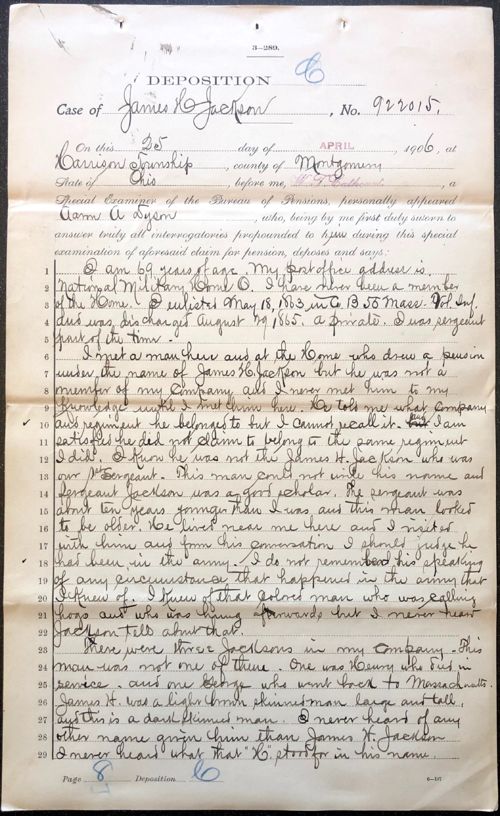 3—289.
DEPOSITION C
Case of James H Jackson, No. 922015.
On this 25 day of APRIL, 1906, at
Harrison Township, county of Montgomery
State of Ohio, before me, W. L., a
Special Examiner of the Bureau of Pensions, personally appeared
Aaron A Dyson, who, being by me first duly sworn to
answer truly all interrogatories propounded to him during this special
examination of aforesaid claim for pension, deposes and says:
1 I am 69 years of age. My post office address is
2 National Military Home O. I have never been a member
3 of the Home. I enlisted May 18, 1863 in Co B 55 Mass. Vol. Inf.
4 and was discharged August 29 1865. a private. I was sergeant
5 part of the time.
6 I met a man here and at the Home who drew a pension
7 under the name of James H. Jackson but he was not a
8 member of my company and I never met him to my
9 knowledge until I met him here. He told me what company
10 and regiment he belonged to but I cannot recall it. I am
11 satisfied he did not claim to belong to the same regiment
12 I did. I know he was not the James H. Jackson who was
13 our 1st Sergeant. This man could not write his name and
14 Sergeant Jackson was a good scholar. The sergeant was
15 about ten years younger than I was and this man looked
16 to be older. He lived near me here and I visited
17 with him and from his conversation I should judge he
18 had been in the army. I do not remember his speaking
19 of any circumstance that happened in the army that
20 I knew of. I knew of that colored man who was calling
21 hogs and who was hung afterwards but I never heard
22 Jackson tell about that.
23 There were three Jacksons in my company. This
24 man was not one of them. One was Henry who died in
25 service. and one George who went back to Massachusetts.
26 James H. was a light brown skinned man large and tall,
27 and this is a dark skinned man. I never heard of any
28 other name given him than James H. Jackson
29 I never heard what that "H." stood for in his name.
Page 8 Deposition C
6—16